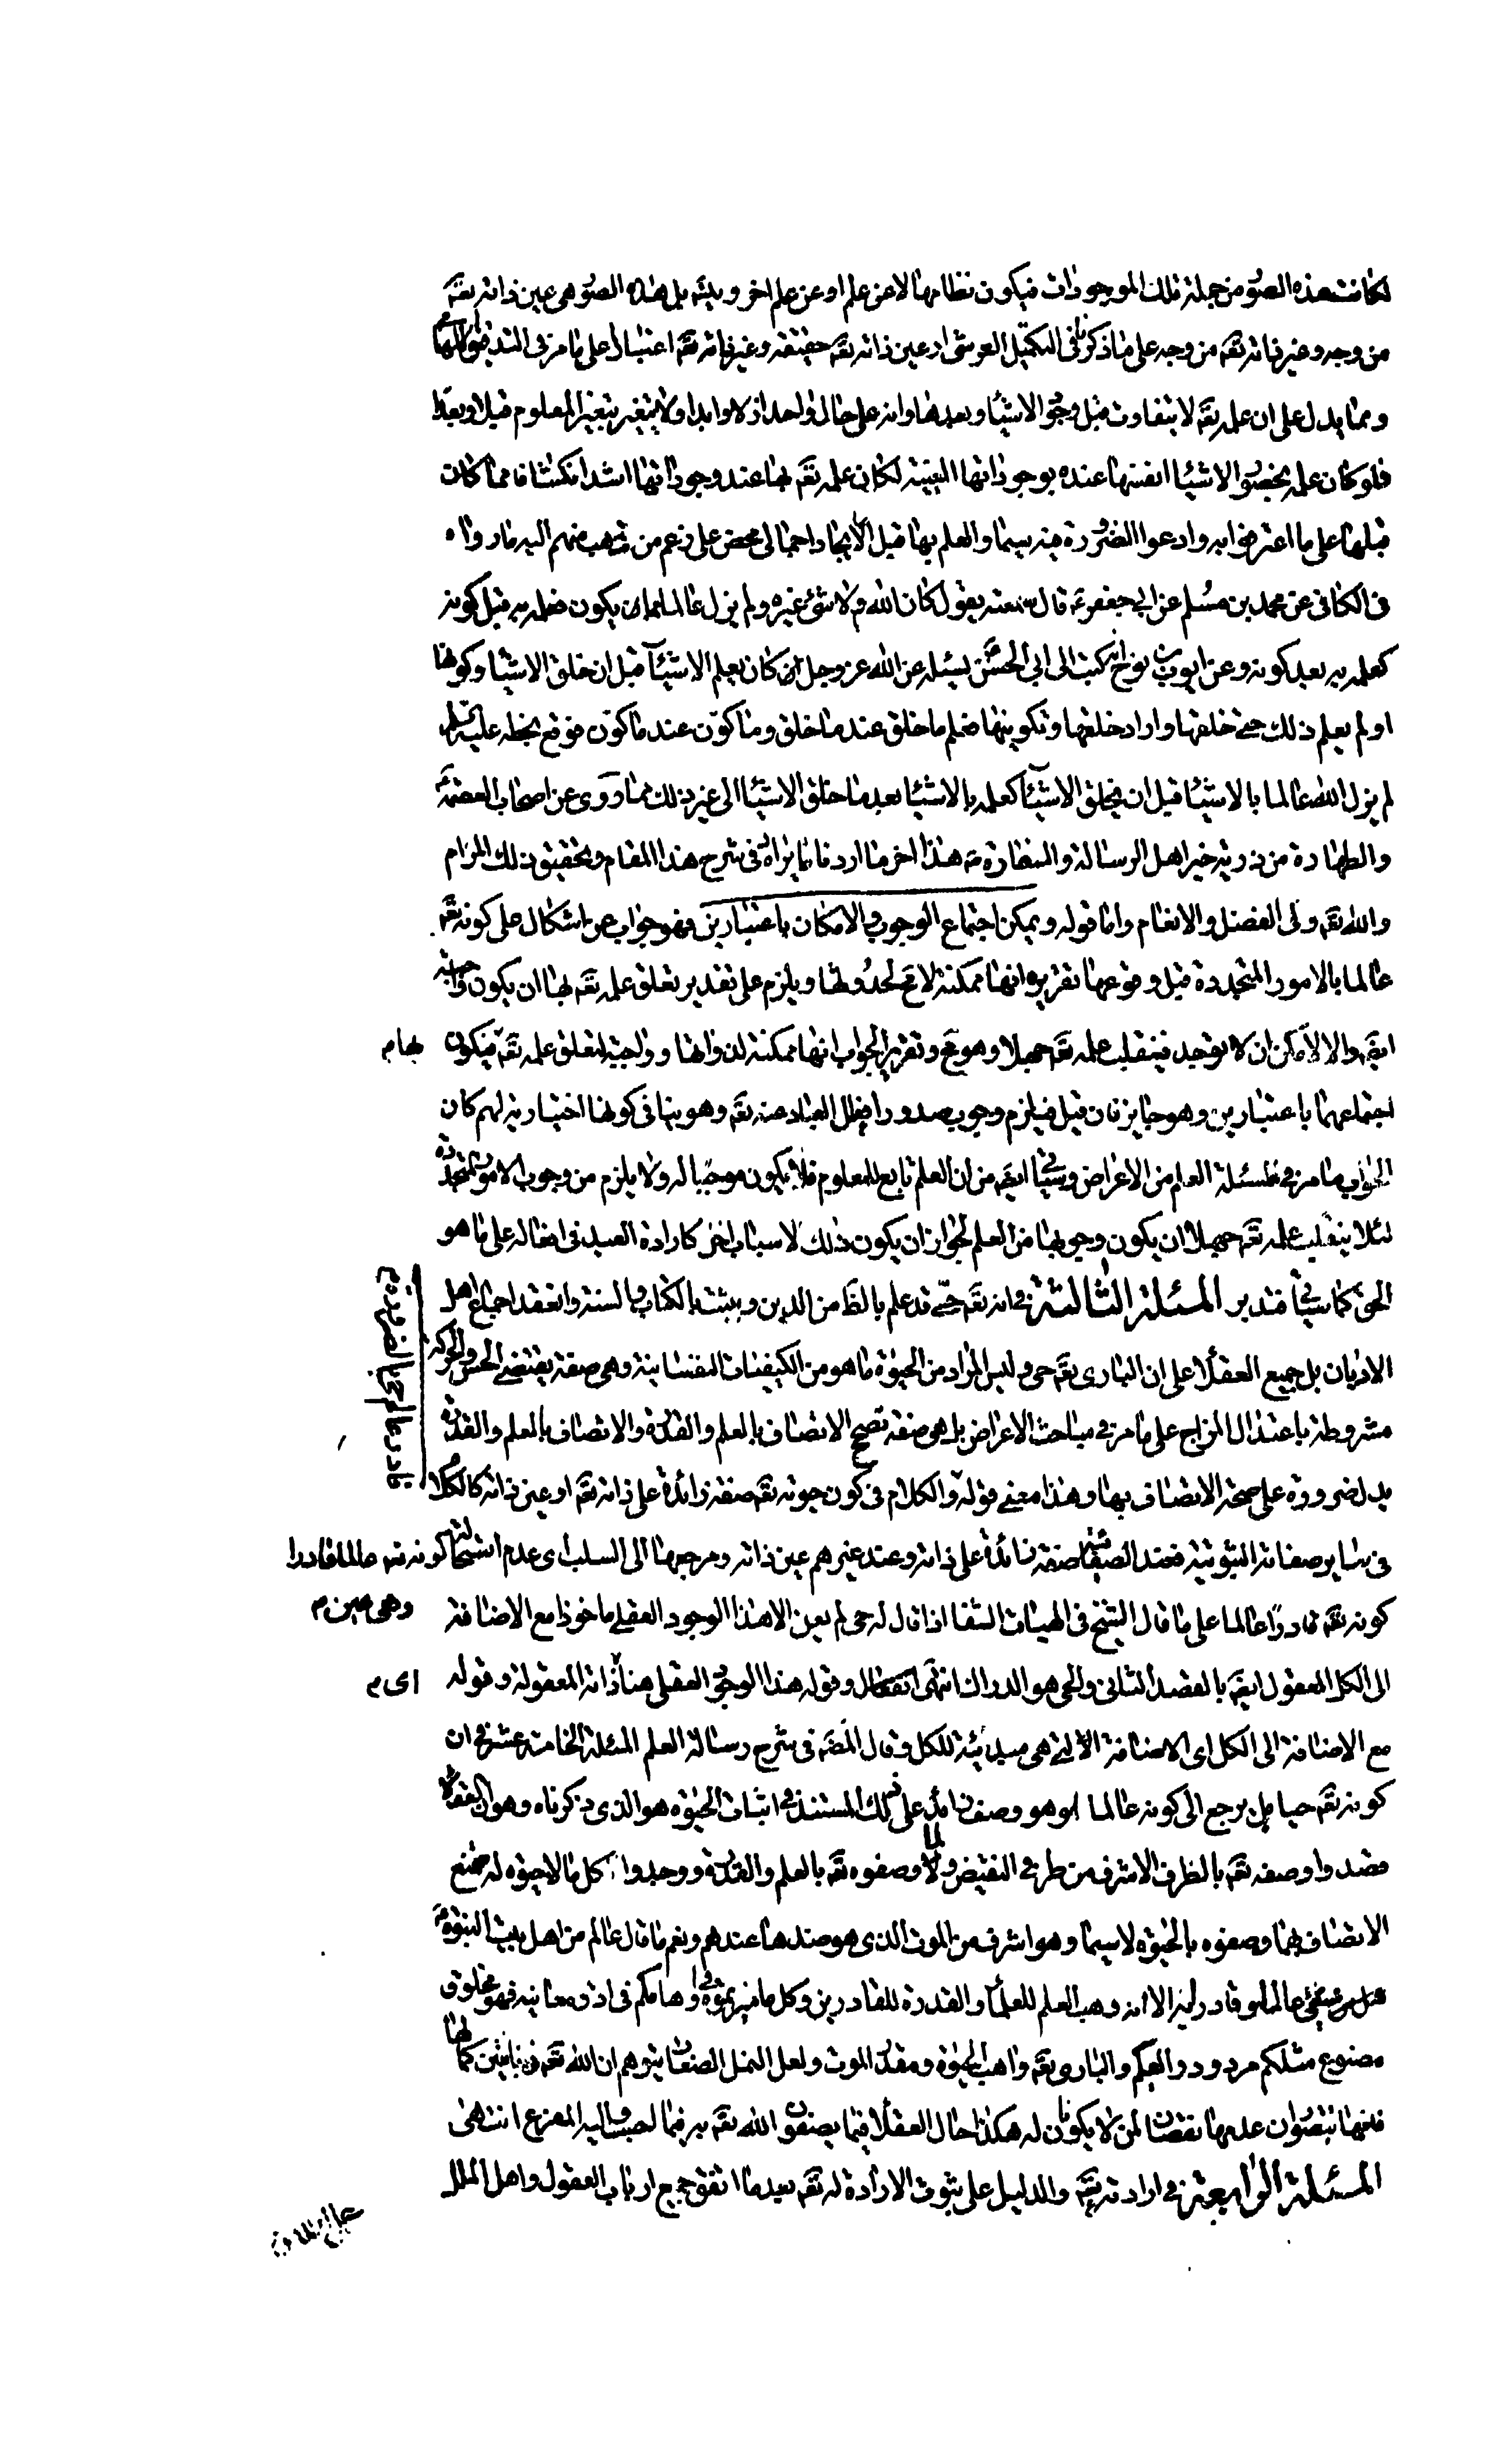 لكانت هذه الصور من جملة تلك الموجودات فيكون نظامها لا عن علم او عن علم اخر ويلتم بل هذه الصور هى عين ذاته تعه
من وجه وغير ذاته تعه من وجه على ما ذكرنا فى التكميل العرشى او عين ذاته تعه حقيقة وغير ذاته تعه اعتبارا على ما مر فى
ومما يدل على ان علمه تعه لا يتفاوت قبل وجود الاشيا وبعدها وانه على حال واحد ازلا وابدا ولا يتغير بتغير المعلوم قبلا وبعدا
فلو كان علمه بحضور الاشيا انفسها عنده بوجوداتها العينية لكان علمه تعه بها عند وجوداتها اشد انكشافا مما كان
قبلها على ما اعترضوا به وادعوا الضرورة فيه سيما والعلم بها قبل الايجاد اجمالى محض على زعم من ذهب منهم اليه ما رواه
فى الكافى عن محمد بن مسلم عن ابى جعفر ع قال سمعته يقول كان الله ولا شئ غيره ولم يزل عالما بما يكون فعلمه به قبل كونه
كعلمه به بعد كونه وعن ايوب بن نوح انه كتب الى ابى الحسن ع يسئله عن الله عز وجل اكان يعلم الاشيآ قبل ان خلق الاشيا وكونها
او لم يعلم ذلك حتى خلقها واراد خلقها وتكوينها فعلم ما خلق عند ما خلق وما كون عند ما كون فوقع بخطه عليه السلم
لم يزل الله عالما بالاشيا قبل ان يخلق الاشيآ كعلمه بالاشيا بعد ما خلق الاشيا الى غير ذلك مما روى عن اصحاب العصمة
والطهارة من ذرية خير اهل الرسالة والسفارة هذا اخر ما اردنا ايراده فى شرح هذا المقام وتحقيق ذلك المرام
والله تعه ولى الفضل والانعام واما قوله ويمكن اجتماع الوجوب والامكان باعتبارين فهو جواب عن اشكال على كونه تعه
عالما بالامور المتجددة قبل وقوعها تقريره انها ممكنة لا مح لحدوثها ويلزم على تقدير تعلق علمه تعه بها ان يكون واجبة
ايضه والا لامكن ان لا يوجد فينقلب علمه تعه جهلا وهو مح وتقرير الجواب انها ممكنة لذواتها وواجبة لتعلق علمه تعه فيكون بها م
اجتماعهما باعتبارين وهو جايز فان قيل فيلزم وجوب صدور افعال العباد عنه تعه وهو ينافى كونها اختيارية لهم كان
الجواب ما مر فى مسئلة العلم من الاعراض وسيأتى ايضه من ان العلم تابع للمعلوم فلا يكون موجبا له ولا يلزم من وجوب الامور المتجددة
لئلا ينقلب علمه تعه جهلا ان يكون وجوبها من العلم لجواز ان يكون ذلك لاسباب اخر كارادة العبد فى افعاله على ما هو
الحق كما سيأتى فتدبر المسئلة الثالثة فى انه تعه حى قد علم بالظ من الدين وثبت بالكتاب والسنة وانعقد اجماع اهل
الاديان بل جميع العقلا على ان البارى تعه حى وليس المراد من الحيوة ما هو من الكيفيات النفسانية وهى صفة يقتضى الحس والحركة
مشروطة باعتدال المزاج على ما مر فى مباحث الاعراض بل هو صفة تصح الاتصاف بالعلم والقدرة والاتصاف بالعلم والقدرة
يدل ضرورة على صحة الاتصاف بها وهذا معنى قوله والكلام فى كون حيوته تعه صفة زائدة على ذاته تعه او عين ذاته كالكلام
فى ساير صفاته الثبوتية فعند الصفاتية صفة زائدة على ذاته وعند غيرهم عين ذاته ومرجعها الى السلب اى عدم استحالة كونه تعه عالما قادرا
كونه تعه قادرا عالما على ما قال الشيخ فى الهيات الشفا اذا قال له حى لم يعن الا هذا الوجود العقلى ماخوذا مع الاضافة وهى عين م
الى الكل المعقول ايضه بالقصد الثانى والحى هو الدراك انتهى وقوله هذا الوجود العقلى هنا ذاته المعقولة وقوله اى م
مع الاضافة الى الكل اى الاضافة التى هى مبدئية للكل وقال المصه فى شرح رسالة العلم المسئلة الخامسة عشر فى ان
كونه تعه حيا هل يرجع الى كونه عالما او هو وصف زائد على ذلك المستند فى اثبات الحيوة هو الذى ذكرناه وهو ان العقلا
قصدوا وصفه تعه بالطرف الاشرف من طرفى النقيض ولما وصفوه تعه بالعلم والقدرة ووجدوا كل ما لا حيوة له ممتنع
الاتصاف بهما وصفوه بالحيوة لاسيما وهو اشرف من الموت الذى هو ضدها عندهم ونعم ما قال عالم من اهل بيت النبوة
هل سمى عالما وقادرا الا انه وهب العلم للعلمآ والقدرة للقادرين وكل ما ميزتموه فى اوهامكم فى ادق معانيه فهو مخلوق
مصنوع مثلكم مردود اليكم والبارى تعه واهب الحيوة ومقدر الموت ولعل النمل الصغار يتوهم ان الله تعه زبانيتين كمالها
فانها تتصور ان عدمها نقصان لمن لا يكونان له هكذا حال العقلا فيما يصفون الله تعه به فيما احسب واليه المفزع انتهى
المسئلة الرابعة فى ارادته تعه والدليل على ثبوت الارادة له تعه بعد ما اتفق جميع ارباب العقول واهل الملل